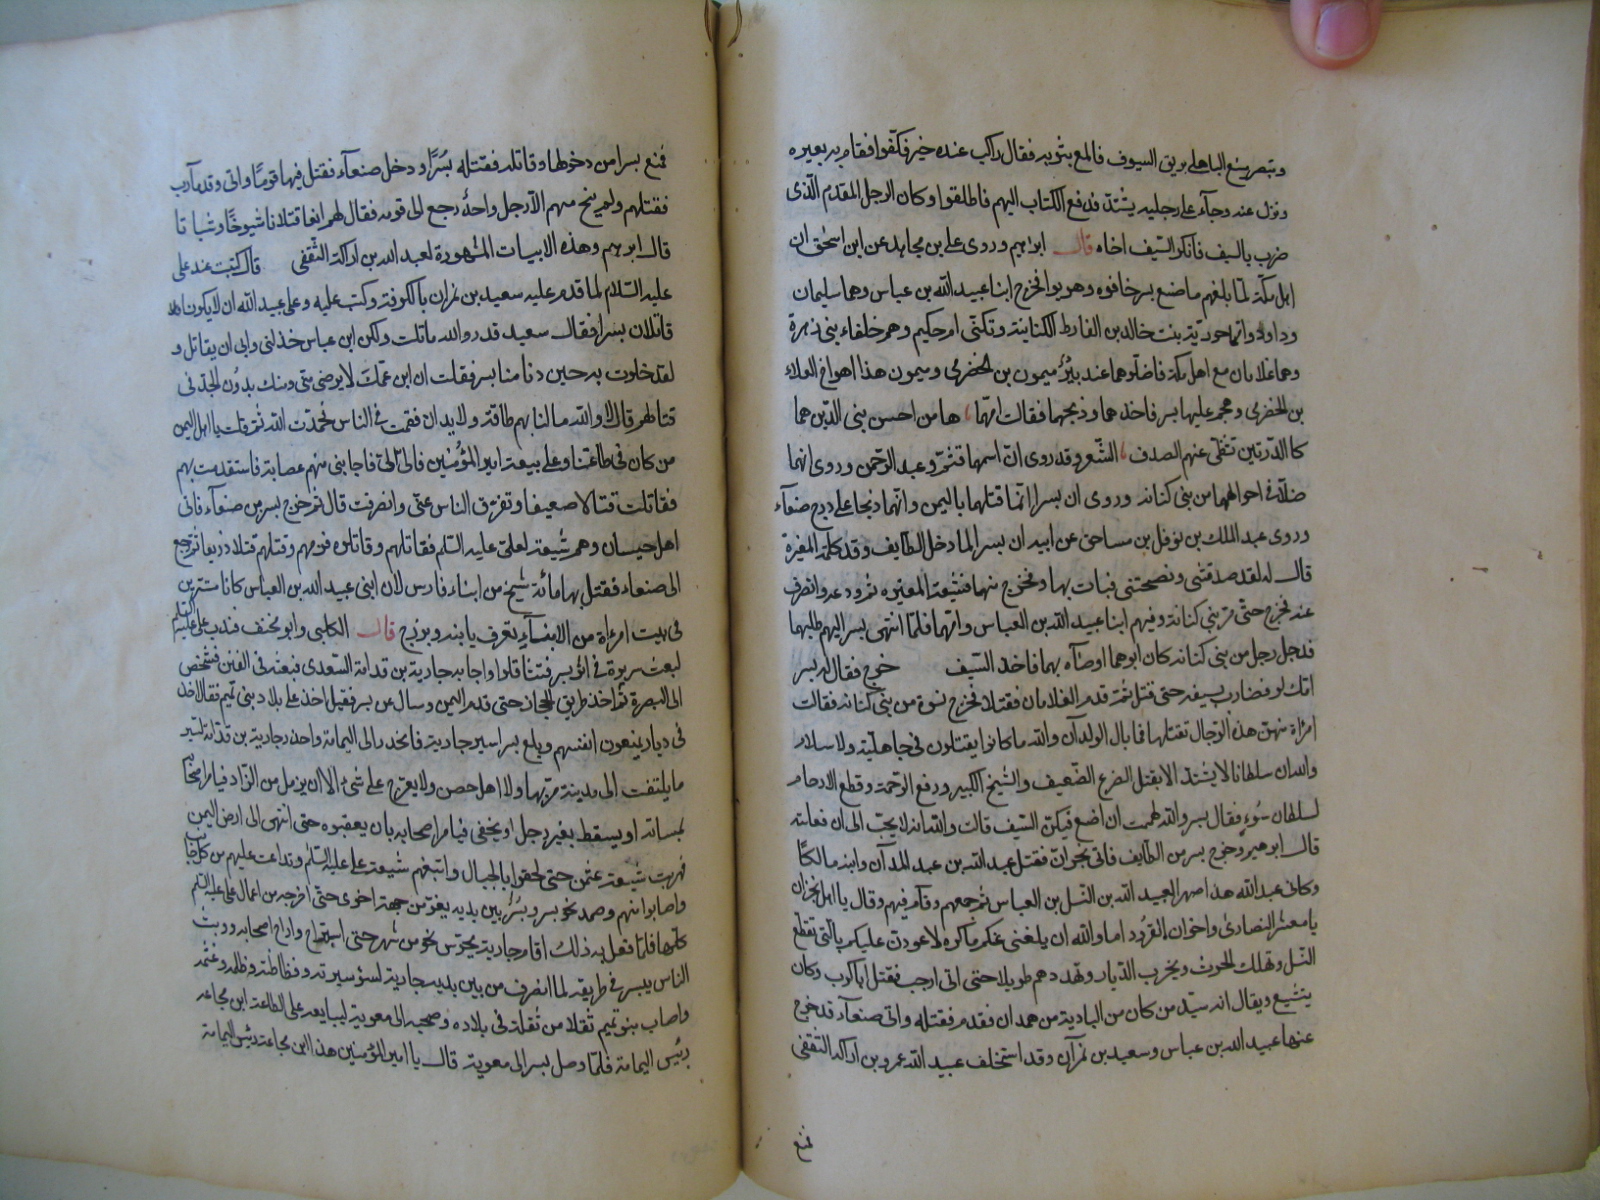 وتبصر منيع الباهلي بريق السيوف فالمع بثوبه فقال راكب عنده خير فكفوا فقام به بعيره
ونزل عنه وجآء على رجليه يشتد فدفع الكتاب اليهم فاطلقوا وكان الرجل المقدم الذى
ضرب بالسيف فانكر السيف اخاه قال ابراهيم وروى على بن مجاهد عن ابن اسحق ان
اهل مكة لما بلغهم ماضع بسر خافوه وهربوا فخرج ابنا عبيد الله بن عباس وهما سليمان
وداود وامهما حورية بنت خالد بن القارط الكنانية وتكنى ام حكيم وهم خلفاء بنى زهرة
وهما غلامان مع اهل مكة فاضلوهما عند بئر ميمون بن الحضرمى وميمون هذا اخو العلاء
بن الحضرمى وهجم عليها بسر فاخذهما وذبحهما فقالت امهما ها من احسن بنى الذين هما
كالدرتين تشظى عنهم الصدف الشعر وقد روى ان اسمهما قثم وعبد الرحمن وروى انهما
ضلا فى اخوالهما من بنى كنانه وروى ان بسرا انما قتلهما باليمن وانهما ذبحا على درج صنعآء
وروى عبد الملك بن نوفل بن مساحق عن ابيه ان بسرا لما دخل الطايف وقد كلمه المغيرة
قال له لقد صدقتنى ونصحتنى فبات بها وخرج منها فشيعه المغيره ثم ودعه وانصرف
عنه فخرج حتى مر ببنى كنانه وفيهم ابنا عبيد الله بن العباس وامهما فلما انتهى بسر اليهم طلبهما
فدخل رجل من بنى كنانه كان ابوهما اوصآه بهما فاخذ السيف خرج فقال له بسر
امك لو فضارب بسيفه حتى قتل ثم قدم الغلامان فقتلا فخرج نسوة من بنى كنانه فقالت
امرأة منهن هذه الرجال تقتلها فما بال الولدان والله ما كانوا يقتلون فى جاهلية ولا اسلام
والله ان سلطانا لا يشتد الا بقتل الضرع الضعيف والشيخ الكبير ورفع الرحمة وقطع الارحام
لسلطان سوء فقال بسر والله هممت ان اضع فيكن السيف قالت والله انه لا يحب الى ان فعلته
قال ابرهيم وخرج بسر من الطآيف فاتى نجران فقتل عبد الله بن عبد المدآن وابنه مالكا
وكان عبد الله هذا صهر العبيد الله بن العباس ثم جمعهم وقام فيهم وقال يا اهل نجران
يا معشر النصارى واخوان القرود اما والله ان بلغنى عنكم ما اكره لاعودن عليكم بالتى تقطع
النسل وتهلك الحرث ويخرب الديار وتهددهم طويلا حتى اتى ارحب فقتل ابا كرب وكان
يتشيع ويقال انه سيد من كان من البادية من همدان فقدمه فقتله واتى صنعآء قد خرج
عنها عبيد الله بن عباس وسعيد بن نمرآن وقد استخلف عبيد الله عمرو بن اراكه الثقفى
فمنع
فمنع بسرا من دخولها وقاتله فقتله بسرا ودخل صنعآء فقتل فيها قوما واتى وفد مآرب
فقتلهم ولم ينج منهم الا رجل واحد رجع الى قومه فقال لهم انعا قتلانا شيوخا وشبانا
قال ابرهيم وهذه الابيات المشهورة لعبد الله بن اراكة الثقفى قال كتبت عند على
عليه السلام لما قدم عليه سعيد بن نمران بالكوفة وكتب عليه وعلى عبيد الله ان لا يكونا
قاتلان بسرا فقال سعيد قد والله قاتلت ولكن ابن عباس خذلنى وابى ان يقاتل و
لقد خلوت به حين دنا منا بسر فقلت ان ابن عمك لا يرضى منى ومنك بدون الجد فى
قتالهم قال لا والله ما لنا بهم طاقة ولا يدان فقمت فى الناس فحمدت الله ثم قلت يا اهل اليمن
من كان فى طاعتنا وعلى بيعة امير المؤمنين فالى الى فاجابنى منهم عصابة فاستقدمت بهم
فقاتلت قتالا ضعيفا وتفرق الناس عنى وانصرفت قال ثم خرج بسر من صنعآء فاتى
اهل جيسان وهم شيعة لعلى عليه السلم فقاتلهم وقاتلوه فهزمهم وقتلهم قتلا ذريعا ثم رجع
الى صنعاء فقتل بها مائة شيخ من ابناء فارس لان ابنى عبيد الله بن العباس كانا مستترين
فى بيت امرأة من الابناء تعرف بابنة بوزج قال الكلبى وابو مخنف فندب على عليه السلم
لبعث سرية فى اثر بسر فتثاقلوا واجابه جارية بن قدامة السعدى فبعثه فى الفين فشخص
الى البصرة ثم اخذ طريق الحجاز حتى قدم اليمن وسال عن بسر فقيل اخذ على بلاد بنى تميم فقال اخذ
فى ديار يمنعون انفسهم وبلغ بسرا مسير جارية فانحدر الى اليمامة واحذ جارية بن قدامة السير
ما يلتفت الى مدينة مر بها ولا اهل حصن ولا يعرج على شىء الا ان يرمل من الزاد فيامر اصحابه
بمساته او يسقط بغير رجل او يحفى فيامر اصحابه بان يعقبوه حتى انتهى الى ارض اليمن
فهربت شيعة عثمن حتى لحقوا بالجبال واتبعهم شيعة على عليه السلم وتداعت عليهم من كل جانب
واصابوا منهم وصمد نحو بسر وبسر بين يديه يفر من جهة الى اخرى حتى اخرجه من اعمال على عليه السلم
كلها فلما فعل به ذلك اقام جارية بحرس نحو من شهر حتى استراح واراح اصحابه ووثب
الناس ببسر فى طريقه لما انصرف من بين يديه جارية لسوء سيرته وفظاظته وظلمه وغشمه
واصاب بنو تميم ثقلا من ثقله فى بلاده وصحبه الى معوية ليبايعه على الطاعة ابن مجاعه
رئيس اليمامة فلما وصل بسر الى معوية قال يا امير المؤمنين هذا ابن مجاعة رئيس اليمامة